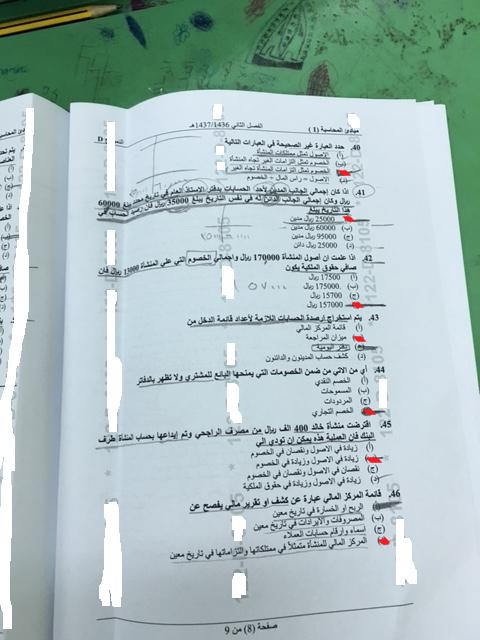 مبادئ المحاسبة ( 1 )
الفصل الثاني 1437/1436هـ
D
40. حدد العبارة غير الصحيحة في العبارات التالية
أ) الأصول تمثل ممتلكات المنشأة
ب) الخصوم تمثل التزامات الغير تجاه المنشأة
الخصوم تمثل التزامات المنشأة تجاه الغير
د) الأصول = راس المال + الخصوم
41. اذا كان إجمالي الجانب المدين لأحد الحسابات بدفتر الاستاذ العام في تاريخ محدد يبلغ 60000
ريال وكان إجمالي الجانب الدائن له في نفس التاريخ يبلغ 35000 ريال فان رصيد الحساب في
هذا التاريخ يبلغ
25000 ريال مدين
ب) 60000 ريال مدين
ج) 95000 ريال مدين
د) 25000 ريال دائن
42. اذا علمت ان أصول المنشأة 170000 ريال واجمالي الخصوم التي على المنشأة 13000 ريال فان
صافي حقوق الملكية يكون
أ) 17500 ريال
ب) 175000 ريال
ج) 15700 ريال
157000 ريال
43. يتم استخراج ارصدة الحسابات اللازمة لأعداد قائمة الدخل من
أ) قائمة المركز المالي
ميزان المراجعة
دفتر اليومية
د) كشف حساب المدينون والدائنون
44. أي من الاتي من ضمن الخصومات التي يمنحها البائع للمشتري ولا تظهر بالدفاتر
أ) الخصم النقدي
ب) المسموحات
ج) المردودات
الخصم التجاري
45. اقترضت منشأة خالد 400 الف ريال من مصرف الراجحي وتم إيداعها بحساب المنشأة طرف
البنك فان العملية هذه يمكن ان تؤدي الي
أ) زيادة في الاصول ونقصان في الخصوم
زيادة في الاصول وزيادة في الخصوم
ج) نقصان في الاصول ونقصان في الخصوم
د) زيادة في الاصول وزيادة في حقوق الملكية
46. قائمة المركز المالي عبارة عن كشف او تقرير مالي يفصح عن
الربح أو الخسارة في تاريخ معين
ب) المصروفات والايرادات في تاريخ معين
ج) أسماء وارقام حسابات العملاء
المركز المالي للمنشأة متمثلاً في ممتلكاتها والتزاماتها في تاريخ معين
صفحة (8) من 9